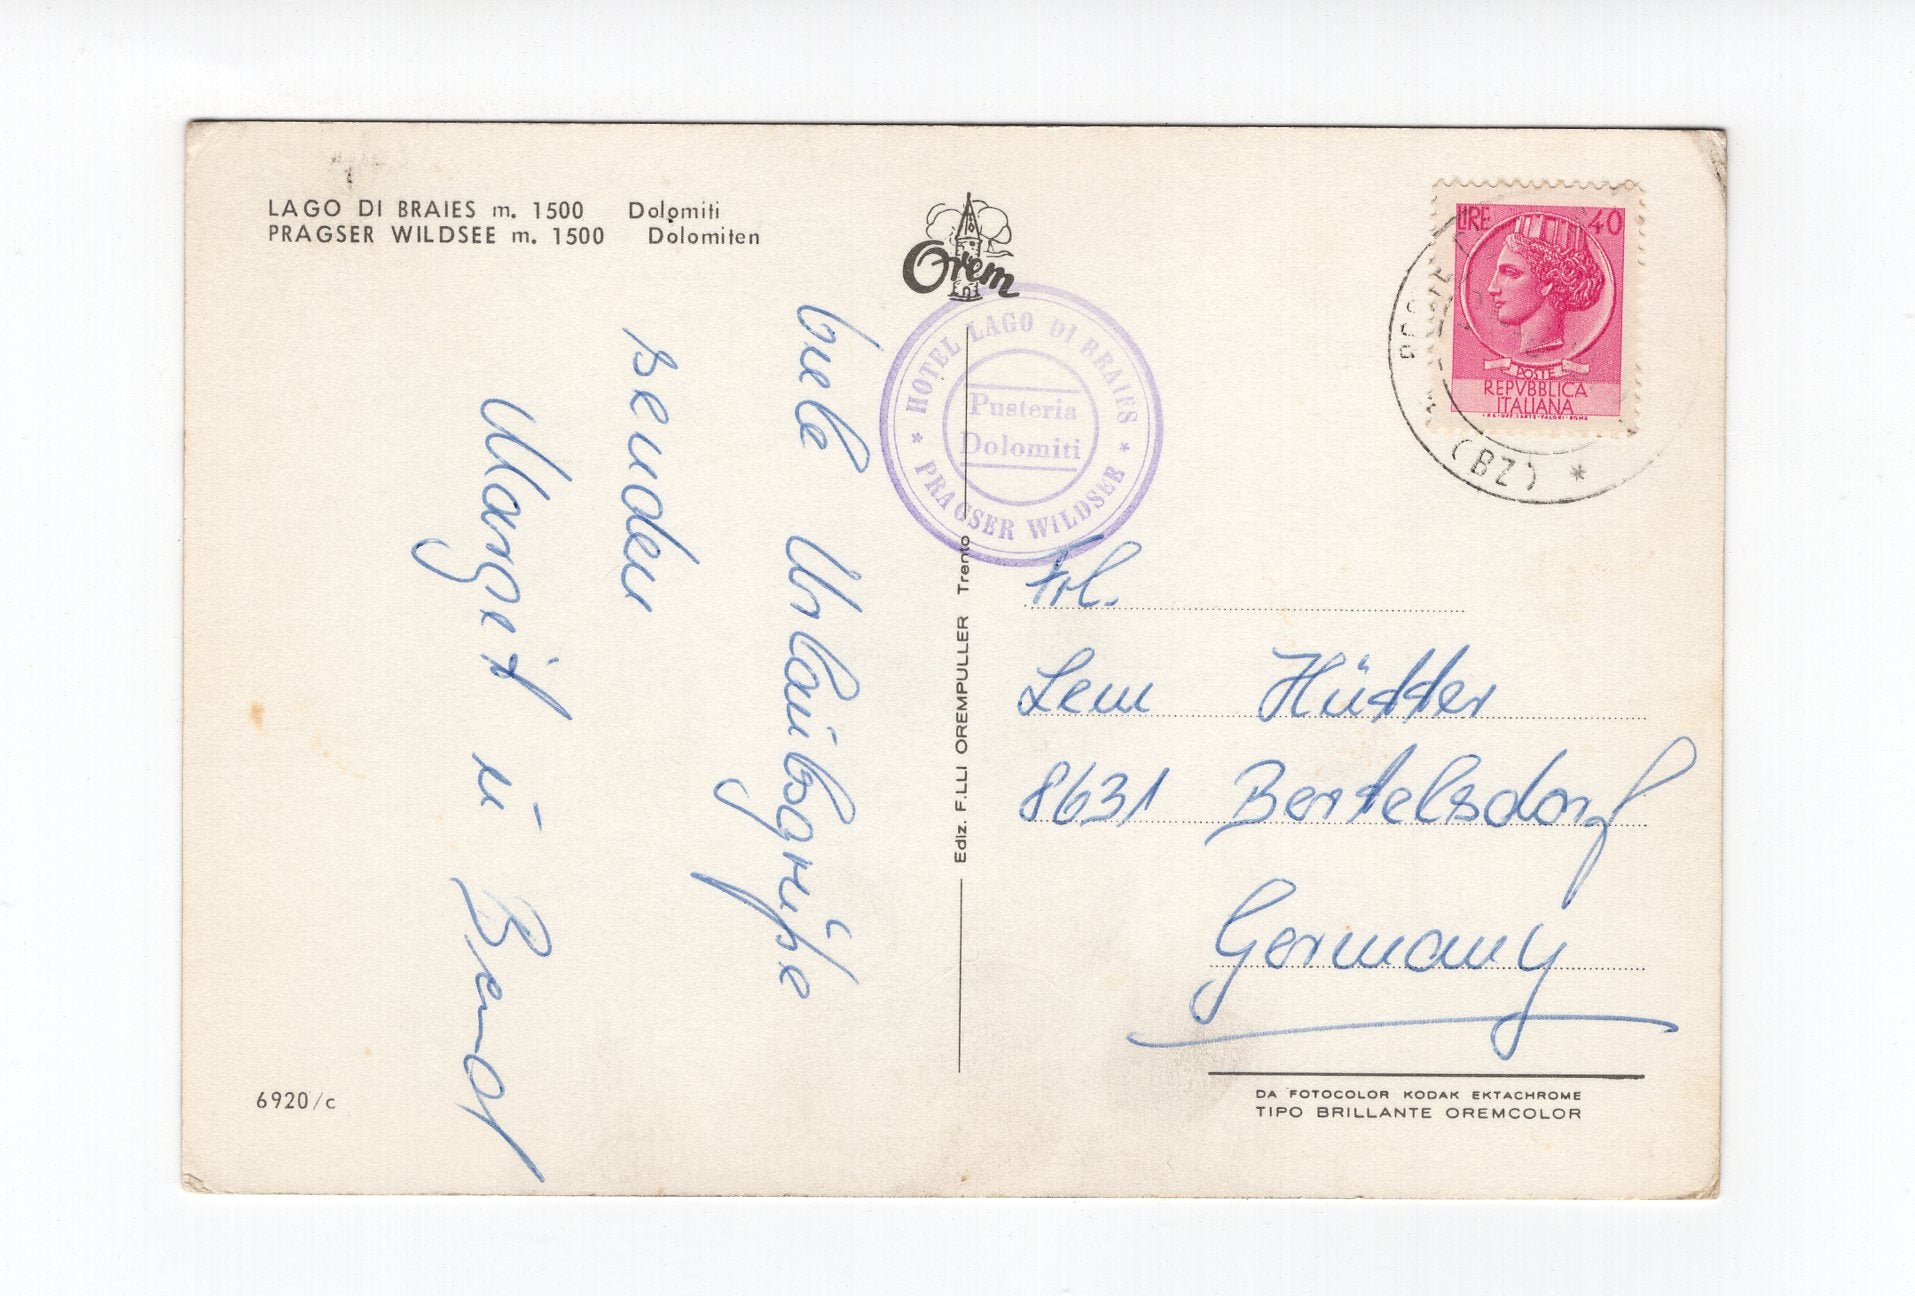 LAGO DI BRAIES m. 1500 Dolomiti
PRAGSER WILDSEE m. 1500 Dolomiten
Orem
HOTEL LAGO DI BRAIES
* PRAGSER WILDSEE *
Pusteria
Dolomiti
LIRE 40
POSTE
REPVBBLICA
ITALIANA
(BZ) *
Viele Urlaubsgrüße
senden
Margit u. Bernd
Ediz. F.LLI OREMPULLER Trento
Frl.
8631 Bertelsdorf
Germany
6920/c
DA FOTOCOLOR KODAK EKTACHROME
TIPO BRILLANTE OREMCOLOR